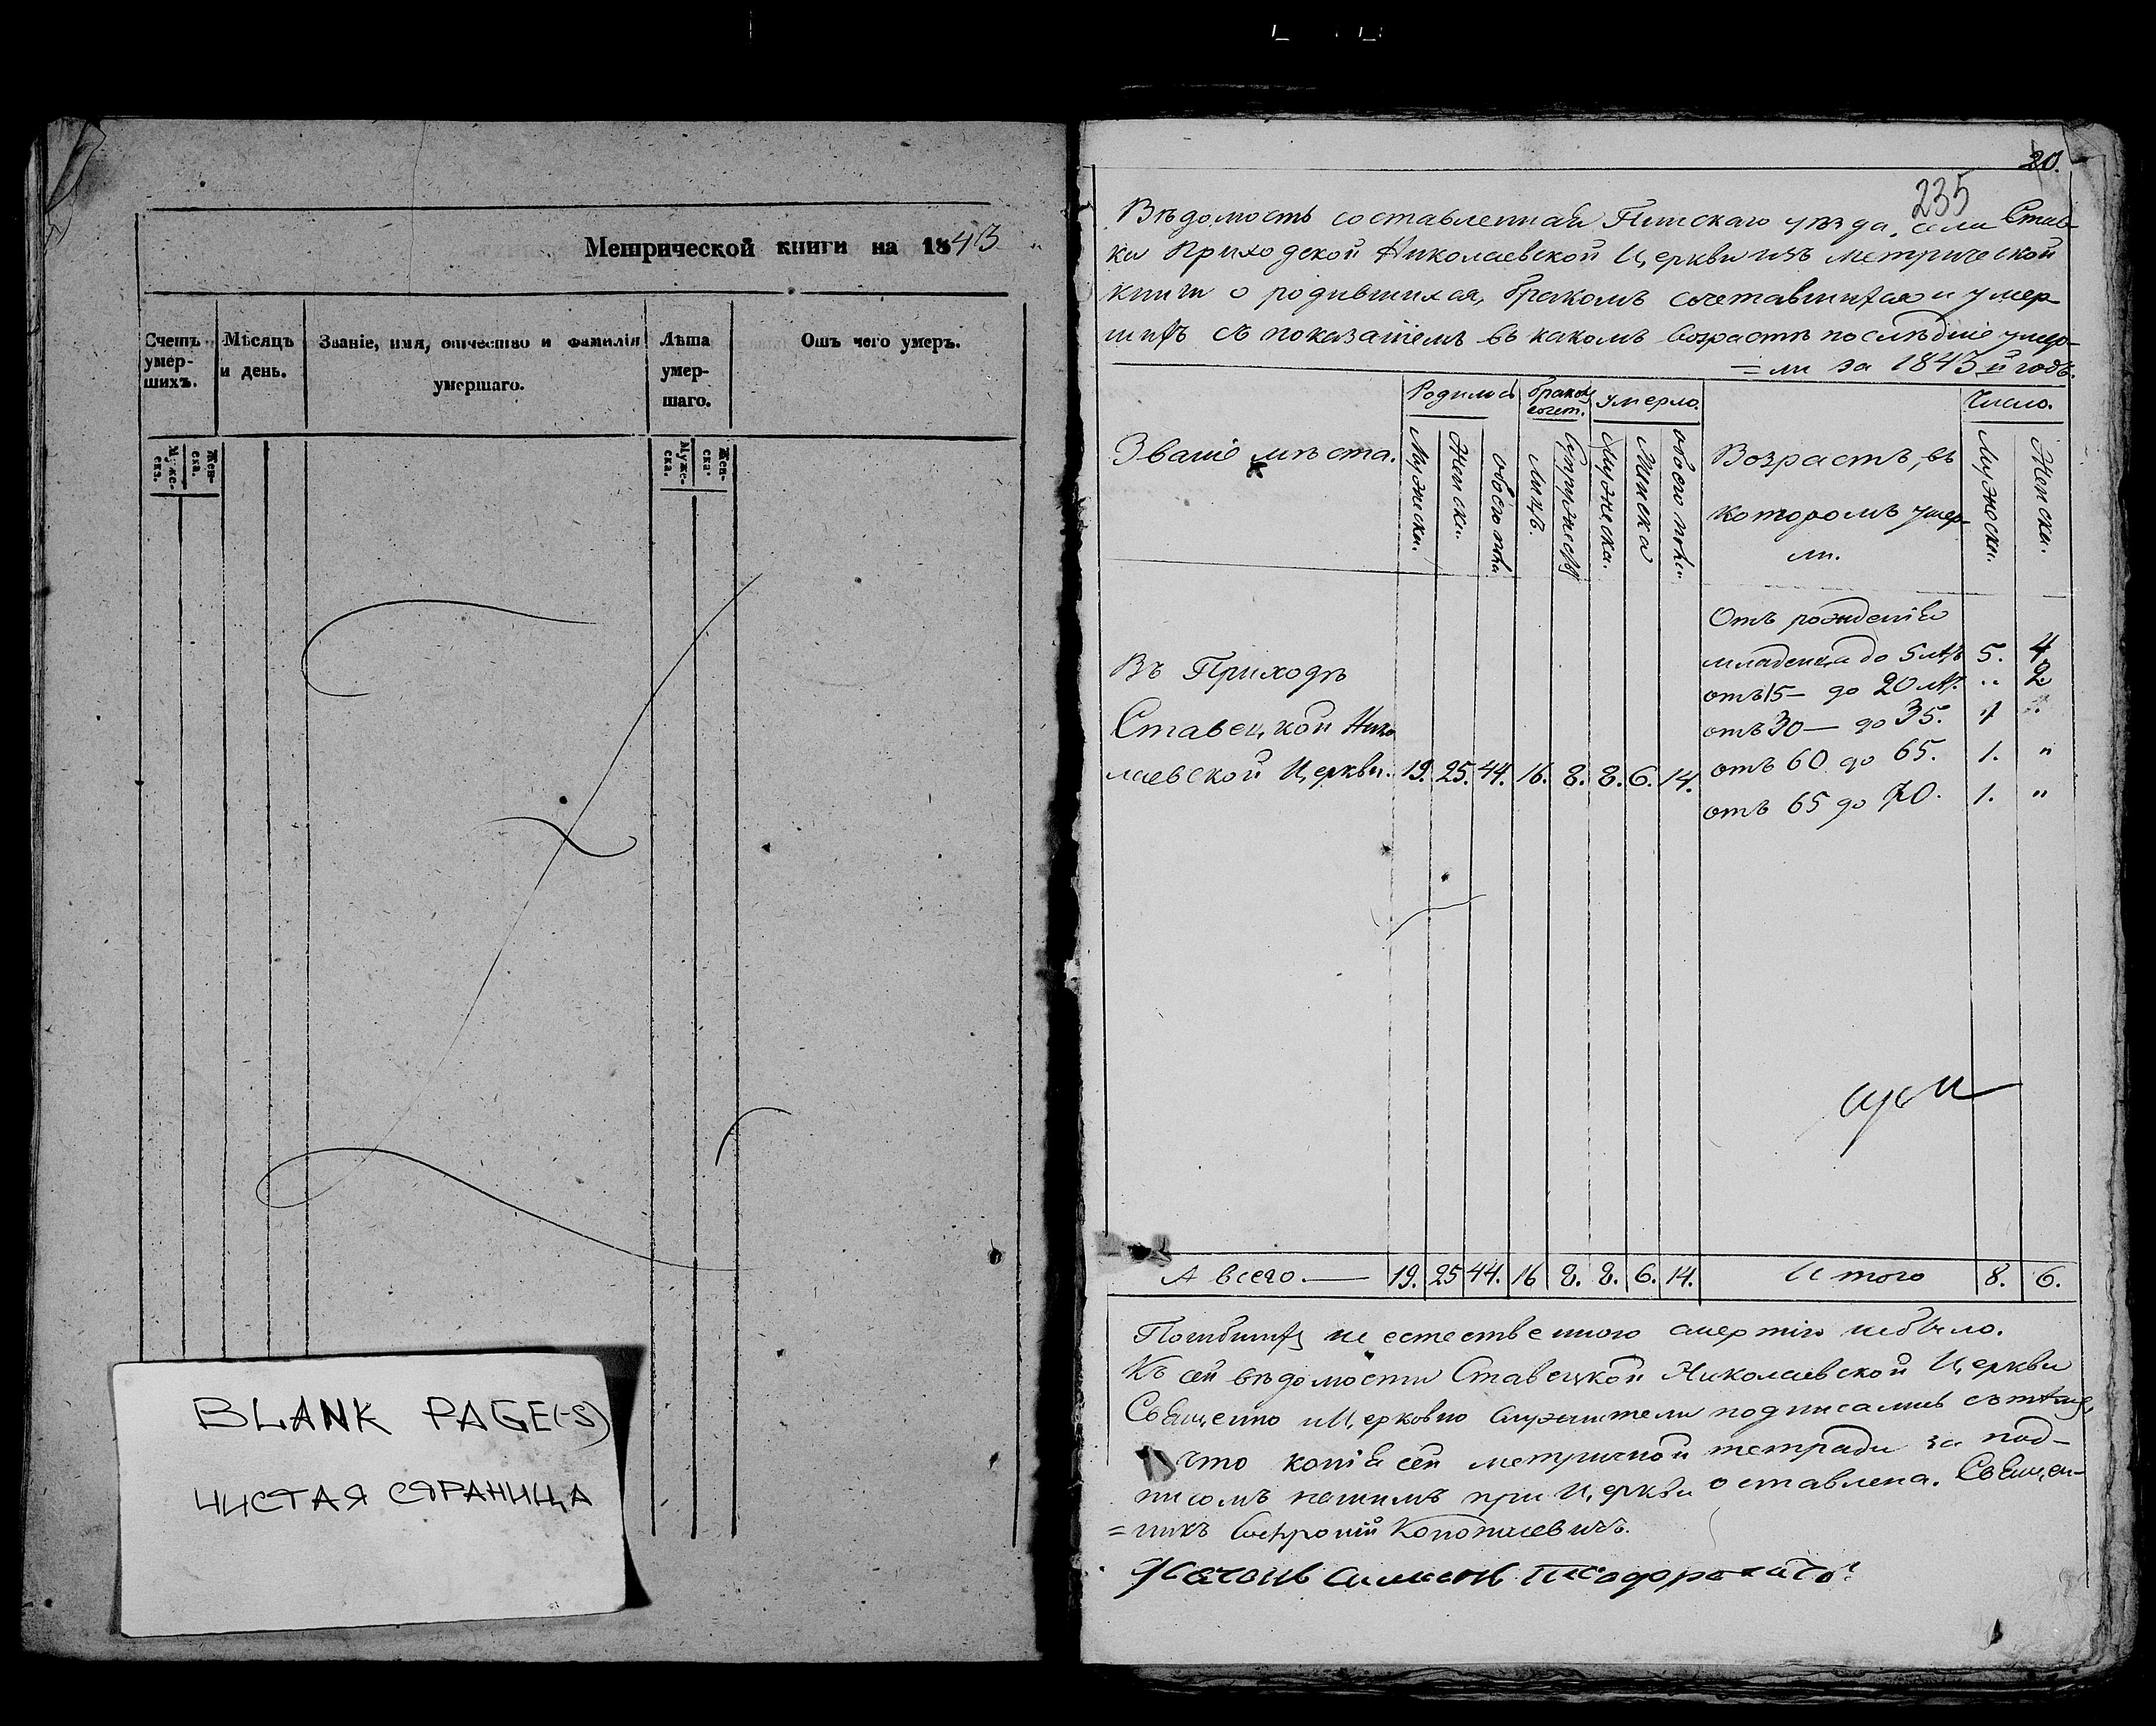 Метрической книги на 1843
Счетъ умер-шихъ.
Мѣсяцъ и день.
Званіе, имя, отчество и фамилія умершаго.
Лѣта умер-шаго.
Отъ чего умеръ.
Муже-ска.
Жен-ска.
Муже-ска.
Жен-ска.
BLANK PAGE(-S)
ЧИСТАЯ СТРАНИЦА
20.
235
Вѣдомость составленная Пинскаго уѣзда, села Став-
ка Приходской Николаевской Церкви изъ метрической
книги о родившихся, бракомъ сочетавшихся и умер-
шихъ съ показаніемъ въ какомъ возрастѣ послѣдніе умер-
=ли за 1843й годъ.
Званіе мѣста.
Родилось
Мужески.
Женски.
обоего пола
бракомъ сочет.
Лицъ.
Умерло.
Мужеска.
Женска
обоего пола
Возрастъ, въ
которомъ умер-
ли.
Число.
Мужески.
Женски.
Отъ рожденія
младенцы до 5 лѣтъ 5. 4
отъ 15 — до 20 лѣт. " 2.
отъ 30 — до 35. 1 "
отъ 60 до 65. 1. "
отъ 65 до 70. 1. "
Въ Приходѣ
Ставецкой Нико
лаевской Церкви. 19. 25. 44. 16. 8. 8. 6. 14.
А всего. — 19. 25 44. 16 8. 8. 6. 14. Итого 8. 6.
Погибшихъ неестественною смертію небыло.
Къ сей вѣдомости Ставецкой Николаевской Церкви
Священно и Церковно служители подписались съ тѣмъ,
что копія сей метричной тетради за под-
писомъ нашимъ при Церкви оставлена. Священ-
=никъ Софроній